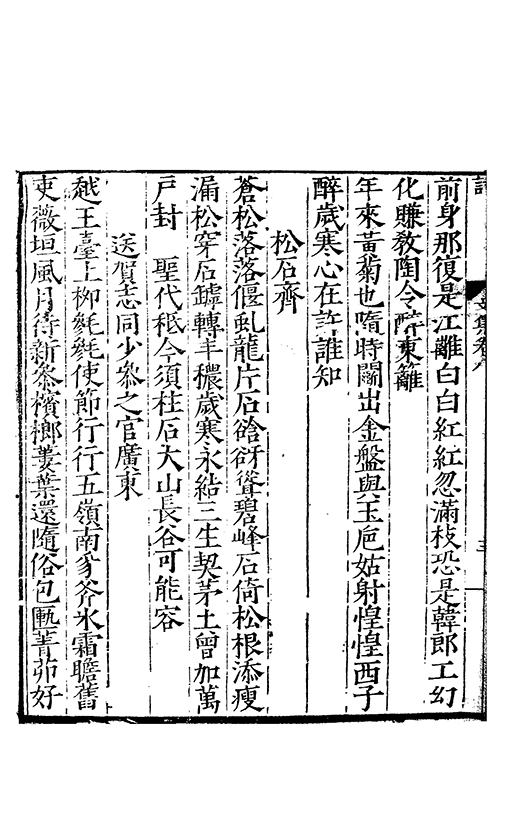 前身那復是江離白白紅紅忽滿枝恐是韓郎工幻
化賺敎陶令醉東籬
年來黃菊也隨時鬭出金盤與玉巵姑射惶惶西子
醉歲寒心在許誰知
松石齊
蒼松落落偃虬龍片石谽谺聳碧峰石倚松根添瘦
漏松穿石罅轉丰穠歲寒永結三生契茅土曾加萬
戸封　聖代秪今須柱石大山長谷可能容
送賀志同少叅之官廣東
越王臺上柳毿毿使節行行五嶺南豸斧氷霜瞻舊
吏薇垣風月待新叅檳榔蔞葉還隨俗包匭菁茆好